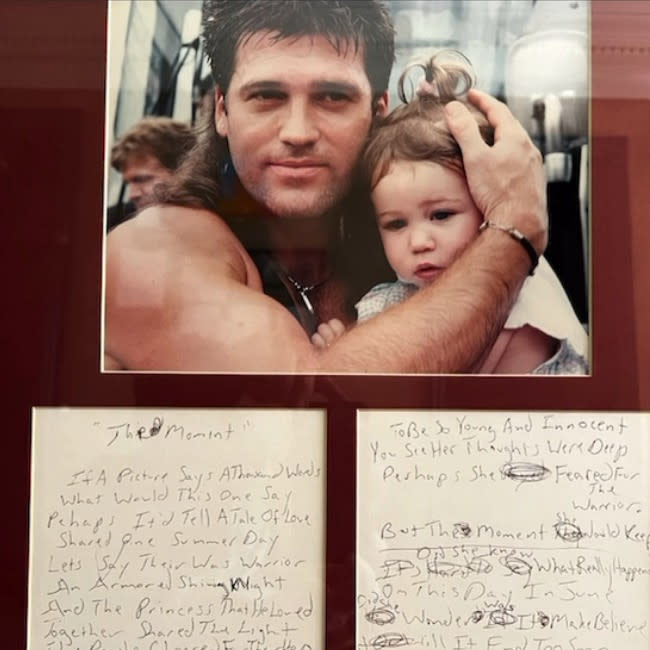 "The Moment"
If A Picture Says A Thousand Words
What Would This One Say
Pehaps It'd Tell A Tale Of Love
Shared One Summer Day
Lets Say Their Was Warrior
An Armored Shining Night
And The Princess That He Loved
Together Shared The Light
The People
To Be So Young And Innocent
You See Her Thoughts Were Deep
Perhaps She Feared For
The
Warrior.
She
But The Moment Would Keep
Only she know
What Really Happen
On This Day In June
was
Wonder If It Make Believe
It End Too Soon